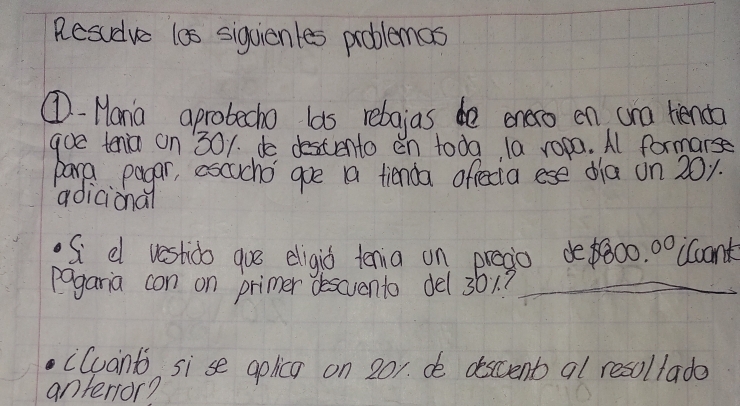 Resuelve los siguientes problemas
①.- María aprobecho las rebajas de enero en una tienda
que tenia un 30%. de descuento en toda la ropa. Al formarse
para pagar, escuchó que la tienda ofrecia ese día un 20%.
adicional
• Si el vestido que eligió tenia un precio de $800.00 ¿Cuant
Pagaria con un primer descuento del 30%?
• ¿Cuánto si se aplica un 20%. de descuento al resultado
anterior?